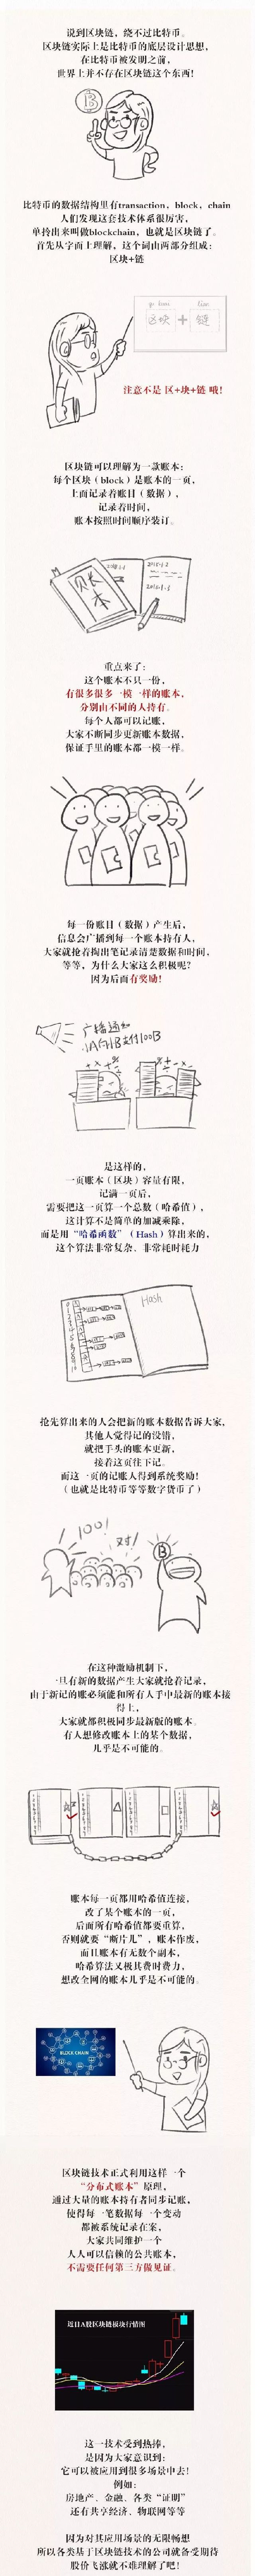 说到区块链，绕不过比特币。
区块链实际上是比特币的底层设计思想，
在比特币被发明之前，
世界上并不存在区块链这个东西！
B
比特币的数据结构里有transaction，block，chain
人们发现这套技术体系很厉害，
单拎出来叫做blockchain，也就是区块链了。
首先从字面上理解，这个词由两部分组成：
区块+链
qu kuai lian
区块 + 链
注意不是 区+块+链 哦！
区块链可以理解为一款账本：
每个区块（block）是账本的一页，
上面记录着账目（数据），
记录着时间，
账本按照时间顺序装订。
账本
重点来了：
这个账本不只一份，
有很多很多一模一样的账本，
分别由不同的人持有。
每个人都可以记账，
大家不断同步更新账本数据，
保证手里的账本都一模一样。
每一份账目（数据）产生后，
信息会广播到每一个账本持有人，
大家就抢着掏出笔记录清楚数据和时间，
等等，为什么大家这么积极呢？
因为后面有奖励！
广播通知
小A向小B支付100B
是这样的，
一页账本（区块）容量有限，
记满一页后，
需要把这一页算一个总数（哈希值），
这计算不是简单的加减乘除，
而是用“哈希函数”（Hash）算出来的，
这个算法非常复杂、非常耗时耗力
Hash
抢先算出来的人会把新的账本数据告诉大家，
其他人觉得记的没错，
就把手头的账本更新，
接着这页往下记。
而这一页的记账人得到系统奖励！
（也就是比特币等等数字货币了）
100！
对！
B
在这种激励机制下，
一旦有新的数据产生大家就抢着记录，
由于新记的账必须能和所有人手中最新的账本接
得上，
大家就都积极同步最新版的账本。
有人想修改账本上的某个数据，
几乎是不可能的。
账本每一页都用哈希值连接，
改了某个账本的一页，
后面所有哈希值都要重算，
否则就要“断片儿”，账本作废，
而且账本有无数个副本，
哈希算法又极其费时费力，
想改全网的账本几乎是不可能的。
BLOCK CHAIN
区块链技术正式利用这样一个
“分布式账本”原理，
通过大量的账本持有者同步记账，
使得每一笔数据每一个变动
都被系统记录在案，
大家共同维护一个
人人可以信赖的公共账本，
不需要任何第三方做见证。
近日A股区块链板块行情图
这一技术受到热捧，
是因为大家意识到：
它可以被应用到很多场景中去！
例如：
房地产、金融、各类“证明”
还有共享经济、物联网等等
因为对其应用场景的无限畅想
所以各类基于区块链技术的公司就备受期待
股价飞涨就不难理解了吧！